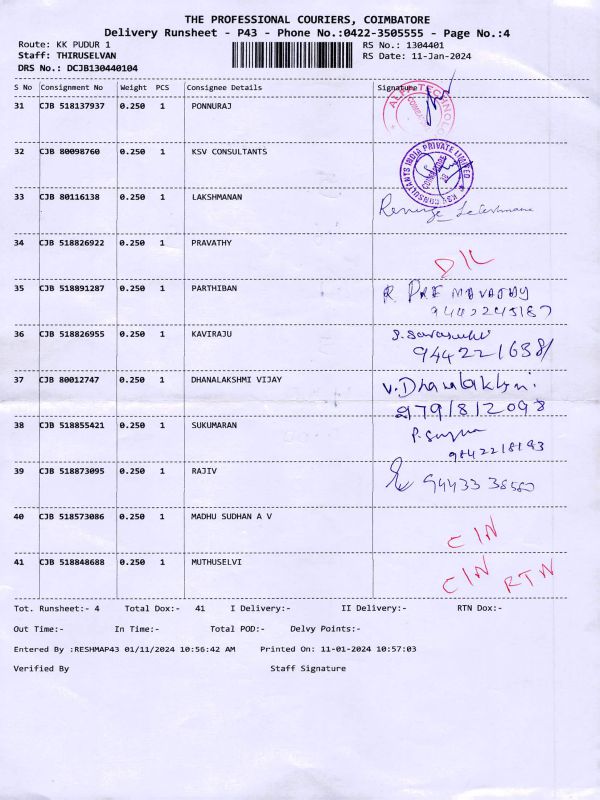 THE PROFESSIONAL COURIERS, COIMBATORE
Delivery Runsheet - P43 - Phone No.:0422-3505555 - Page No.:4
Route: KK PUDUR 1 RS No.: 1304401
Staff: THIRUSELVAN RS Date: 11-Jan-2024
DRS No.: DCJB130440104
S No Consignment No Weight PCS Consignee Details Signature
31 CJB 518137937 0.250 1 PONNURAJ
32 CJB 80098760 0.250 1 KSV CONSULTANTS
KSV CONSULTANTS INDIA PRIVATE LIMITED
33 CJB 80116138 0.250 1 LAKSHMANAN
34 CJB 518826922 0.250 1 PRAVATHY
D/L
35 CJB 518891287 0.250 1 PARTHIBAN
36 CJB 518826955 0.250 1 KAVIRAJU
37 CJB 80012747 0.250 1 DHANALAKSHMI VIJAY V. Dhanalakshmi
38 CJB 518855421 0.250 1 SUKUMARAN
39 CJB 518873095 0.250 1 RAJIV
40 CJB 518573086 0.250 1 MADHU SUDHAN A V
C/N
41 CJB 518848688 0.250 1 MUTHUSELVI C/N RTN
Tot. Runsheet:- 4 Total Dox:- 41 I Delivery:- II Delivery:- RTN Dox:-
Out Time:- In Time:- Total POD:- Delvy Points:-
Entered By :RESHMAP43 01/11/2024 10:56:42 AM Printed On: 11-01-2024 10:57:03
Verified By Staff Signature